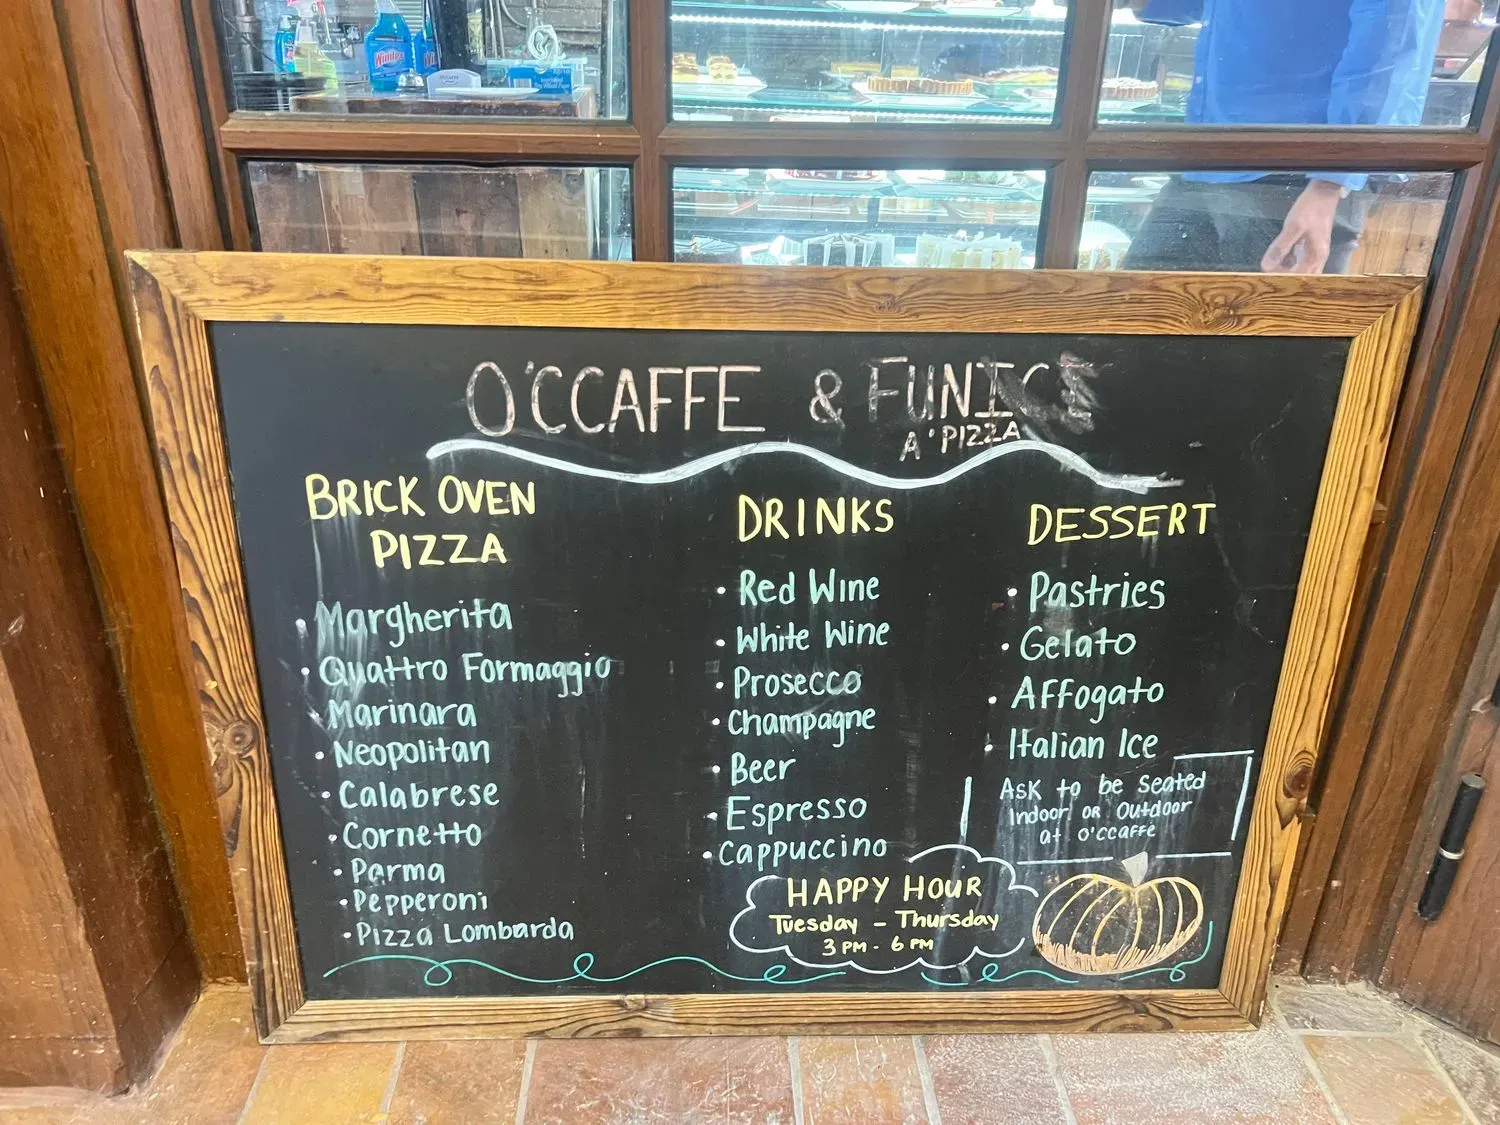 Windex
O'CCAFFE & FUNICI
A' PIZZA
BRICK OVEN
PIZZA
• Margherita
• Quattro Formaggio
• Marinara
• Neopolitan
• Calabrese
• Cornetto
• Parma
• Pepperoni
• Pizza Lombarda
DRINKS
• Red Wine
• White Wine
• Prosecco
• Champagne
• Beer
• Espresso
• Cappuccino
HAPPY HOUR
Tuesday - Thursday
3 PM - 6 PM
DESSERT
• Pastries
• Gelato
• Affogato
• Italian Ice
Ask to be Seated
Indoor or Outdoor
at O'ccaffe